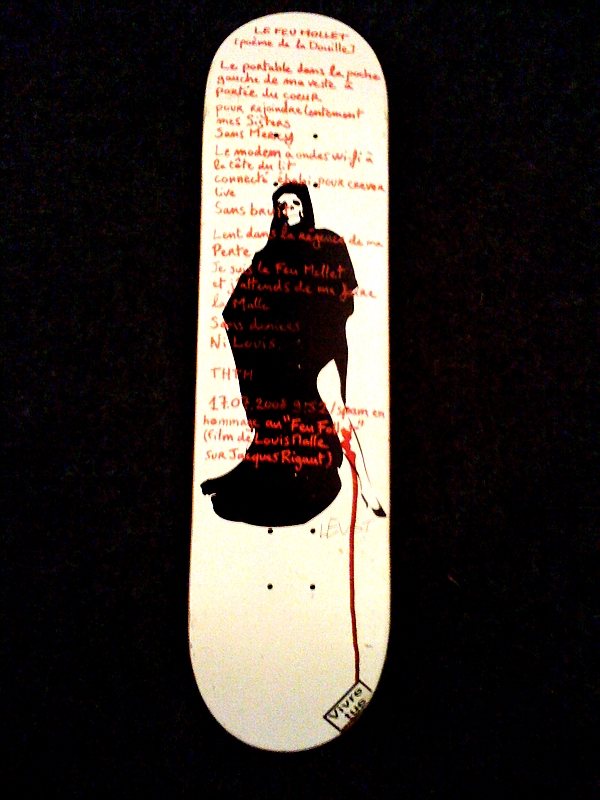 LE FEU MOLLET
(poème de la Douille)
Le portable dans la poche
gauche de ma veste à
portée du coeur
pour rejoindre lentement
mes Sisters
Sans Mercy
Le modem à ondes wifi à
la tête du lit
connecté pour crever
live
Sans bruit
Lent dans la de ma
Perte
Je suis le Feu Mollet
et j'attends de me faire
la Malle
Sans
Ni Louis.
THTH
17.07.2008 9:52/spam en
hommage au "Feu Follet"
(film de Louis Malle
sur Jacques Rigaut)
LEVST
Vivre
tue